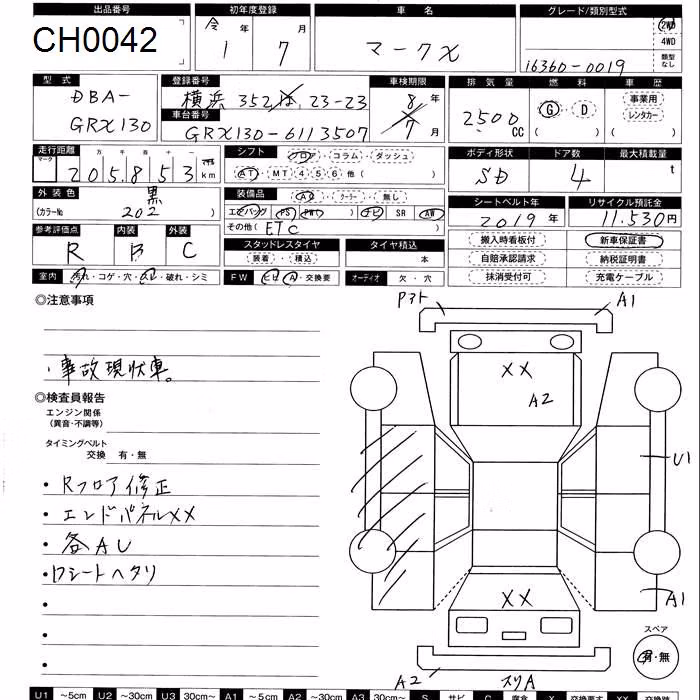 出品番号
CH0042
初年度登録
令 1 年 7 月
車名
マークX
グレード/類別型式
16360-0019
2WD
4WD
類型なし
型式
DBA-
GRX130
登録番号
横浜 352 は 23-23
車台番号
GRX130-6113507
車検期限
8 年
7 月
排気量
2500 CC
燃料
G ・ D
( )
車歴
事業用
レンタカー
( )
走行距離
マーク 万 千 百 十 一
205,853 km
シフト
フロア ・ コラム ・ ダッシュ
AT ・ MT 4 5 6 他 ( )
ボディ形状
SD
ドア数
4
最大積載量
t
外装色
黒
(カラーNo 202 )
装備品
AC ・ クーラー ・ 無し
エアバッグ PS PW ナビ SR AW
その他 ( ETC )
シートベルト年
2019 年
リサイクル預託金
11,530円
参考評価点 内装 外装
R B C
スタッドレスタイヤ
装着 ・ 積込
タイヤ積込
本
搬入時看板付 新車保証書
自賠承認請求 納税証明書
抹消受付可 充電ケーブル
室内 汚れ・コゲ・穴・スレ・破れ・シミ
FW ヒビ A ・交換要
オーディオ 欠 ・ 穴
◎注意事項
・事故現状車。
◎検査員報告
エンジン関係
(異音・不調等)
タイミングベルト
交換 有・無
・Rフロア修正
・エンドパネルXX
・各AU
・Dシートヘタリ
Pアト
A1
XX
A2
U1
A1
XX
A2
スリA
スペア
有・無
U1 ~5cm U2 ~30cm U3 30cm~ A1 ~5cm A2 ~30cm A3 30cm~ S サビ C 腐食 X 交換要す XX 交換跡